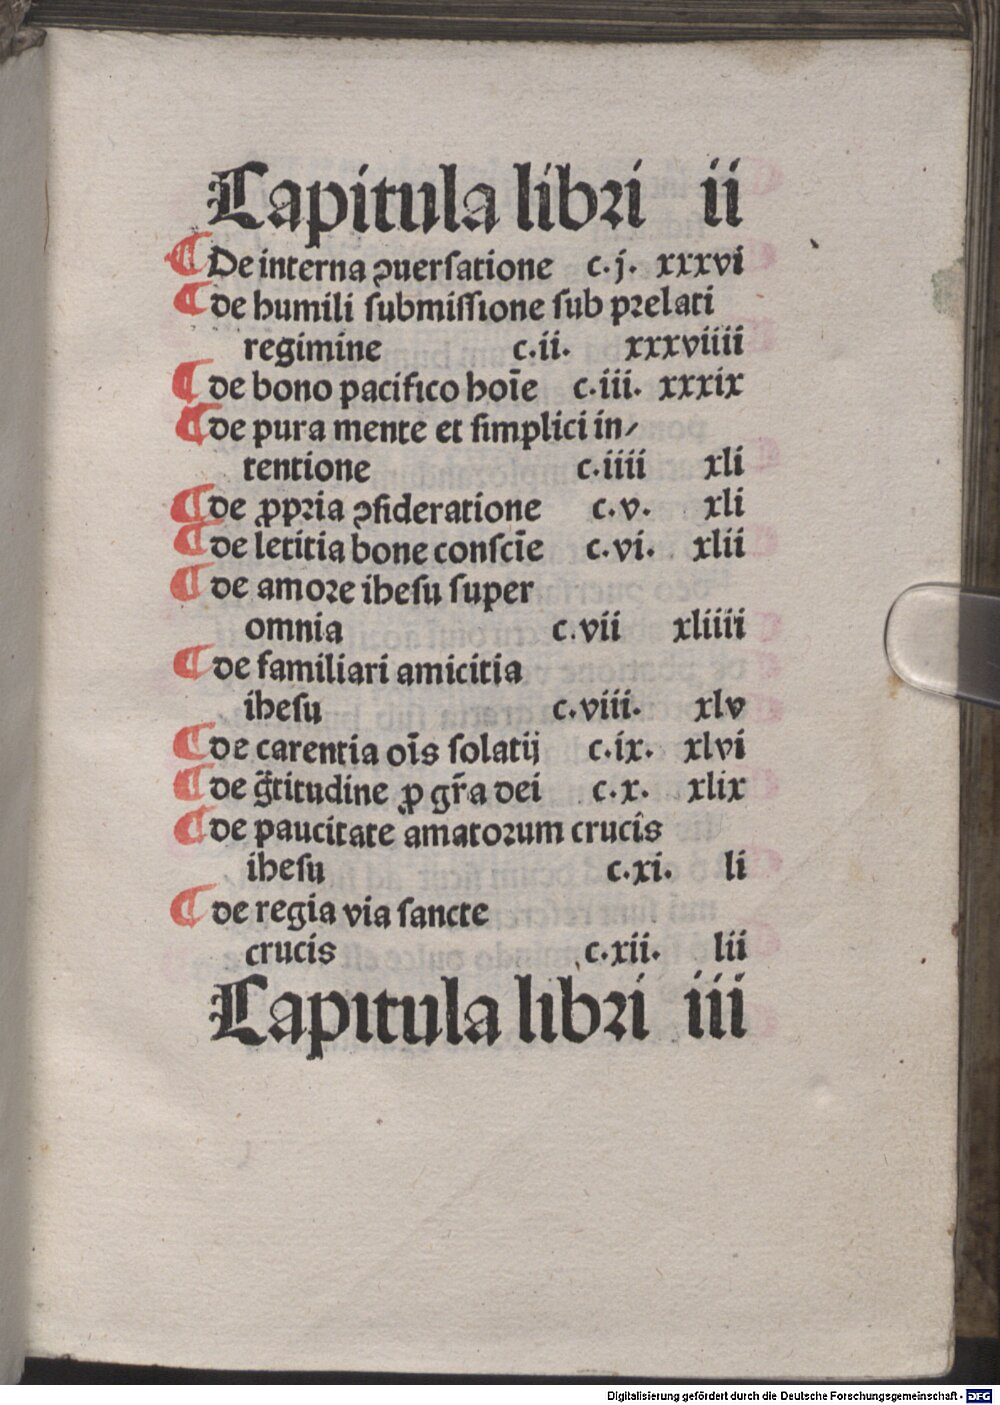 Capitula libri ii
¶ De interna ꝯuersatione c.j. xxxvi
¶ de humili submissione sub prelati
regimine c.ii. xxxviiii
¶ de bono pacifico hoīe c.iii. xxxix
¶ de pura mente et simplici in/
tentione c.iiii xli
¶ de ꝓpria ꝯsideratione c.v. xli
¶ de letitia bone consciē c.vi. xlii
¶ de amore ihesu super
omnia c.vii xliiii
¶ de familiari amicitia
ihesu c.viii. xlv
¶ de carentia oīs solatij c.ix. xlvi
¶ de g̃titudine ꝓ gr̃a dei c.x. xlix
¶ de paucitate amatorum crucis
ihesu c.xi. li
¶ de regia via sancte
crucis c.xii. lii
Capitula libri iii
Digitalisierung gefördert durch die Deutsche Forschungsgemeinschaft - DFG